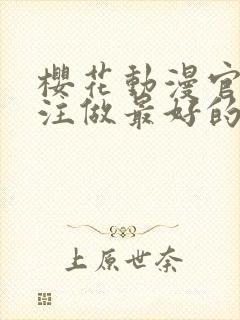 櫻花動漫官
注做最好的
上原世奈